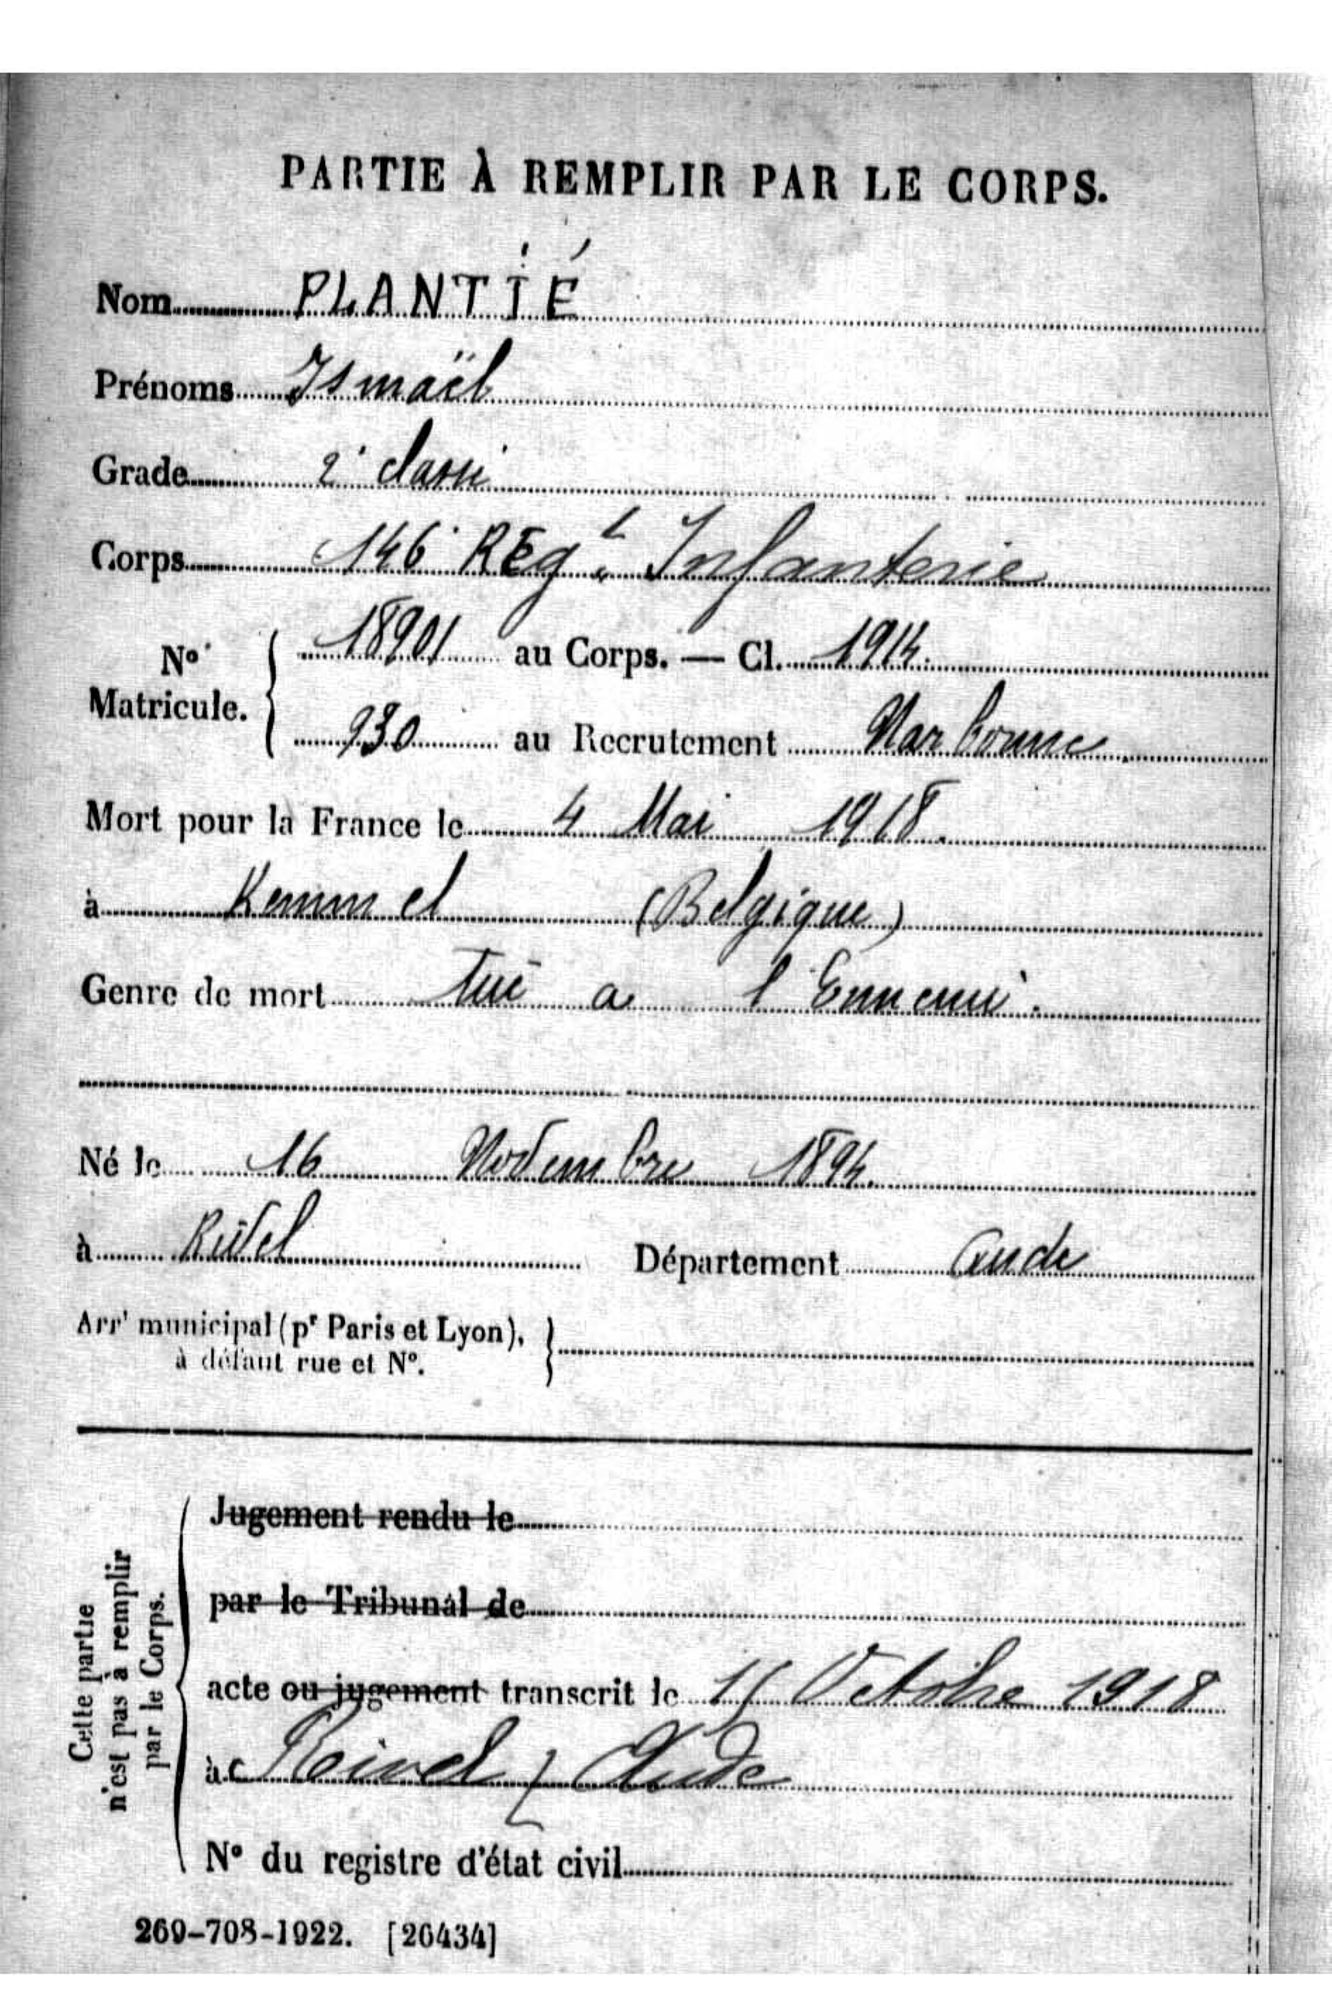 PARTIE À REMPLIR PAR LE CORPS.
Nom PLANTIÉ
Prénoms Ismaël
Grade 2e classe
Corps 146e Régt Infanterie
No Matricule. { 18901 au Corps. — Cl. 1914.
930 au Recrutement Narbonne
Mort pour la France le 4 Mai 1918.
à Kemmel (Belgique)
Genre de mort tué a l'Ennemi.
Né le 16 Novembre 1894.
à Rivel Département Aude
Arrt municipal (pr Paris et Lyon), à défaut rue et No. }
Cette partie n'est pas à remplir par le Corps.
Jugement rendu le
par le Tribunal de
acte ou jugement transcrit le Octobre 1918
à Rivel / Aude
No du registre d'état civil
269-708-1922. [26434]